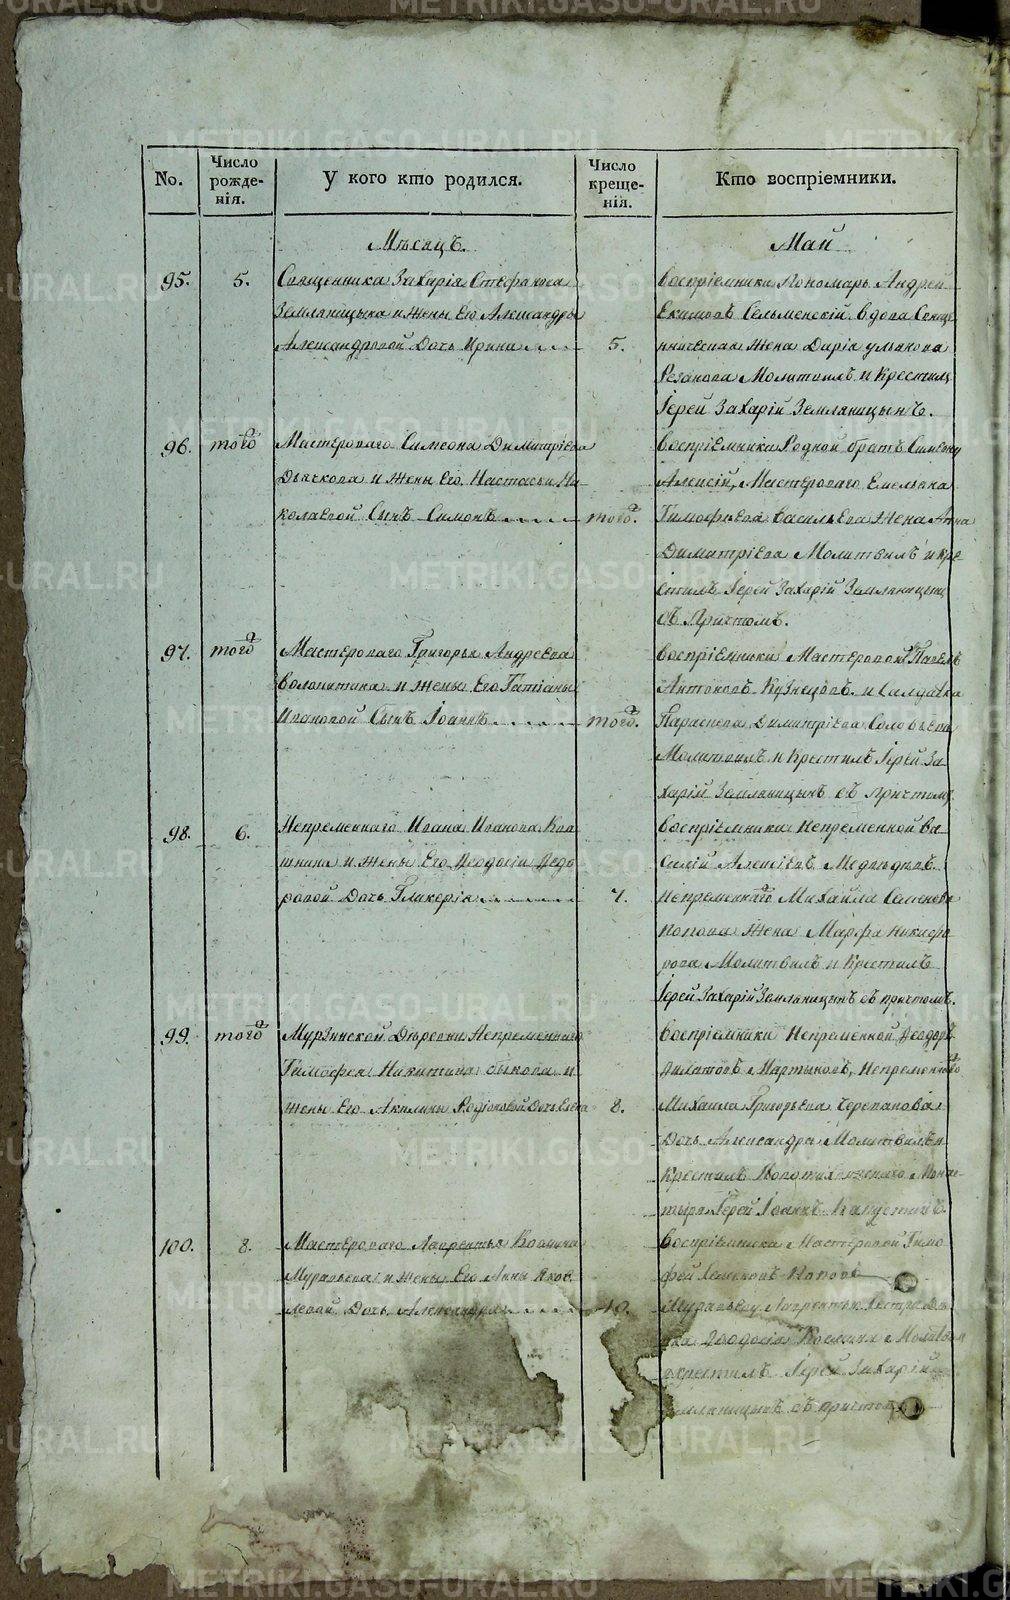 No.
Число рожде-нія.
У кого кто родился.
Число креще-нія.
Кто воспріемники.
Мѣсяцъ.
Май
95.
5.
Священника Захарія Стефанова
Земляницына и жены Его Александры
Александровой Дочь Ирина
5.
Воспріемники Пономарь Андрей
Екимовъ Сельменскій вдова Свяще
нническая жена Дарія
Резанова Молитвилъ и Крестилъ
Іерей Захарій Земляницынъ.
96.
того
Мастероваго Симеона Димитріева
Дьячкова и жены Его Настасьи Ни-
колаевой Сынъ Симонъ
того.
Воспріемники Родной братъ Симеону
Алексій, Мастероваго Емельяна
Тимофеева Васильева жена Анна
Димитріева Молитвилъ и кре
стилъ Іерей Захарій Земляницынъ
съ Причтомъ.
97.
того
Мастероваго Григорья Андреева
Волокитина и жены Его Татіаны
Ивановой Сынъ Іоаннъ
того.
Воспріемники Мастеровой Павелъ
Антоновъ Кузнецовъ и Салдатка
Параскева Димитріева Соловьева
Молитвилъ и Крестилъ Іерей За-
харій Земляницынъ съ Причтомъ.
98.
6.
Непременнаго Ивана Иванова
и жены Его Феодосіи Федо
ровой Дочь Гликерія
7.
Воспріемники Непременной Ва
силій Алексіевъ Медведевъ.
Непременнаго Михайла Семенова
Попова жена Марфа Никифо
рова Молитвилъ и Крестилъ
Іерей Захарій Земляницынъ съ причтомъ.
99.
того
Мурзинской Деревни Непременнаго
Тимофея Никитина Быкова и
жены Его Акилины Родіоновой Дочь Елена
8.
Воспріемники Непременной Феодоръ
Филатовъ Мартыновъ, Непременнаго
Михаила Григорьева Черепанова
Дочь Александра Молитвилъ и
Крестилъ Мона-
тыря Іерей Іоаннъ Капустинъ.
100.
8.
Мастероваго Лаврентья Козмина
Муравьева и жены Его Анны Яков
левой Дочь Александра
10.
Воспріемники Мастеровой Тимо
фей Семеновъ Поповъ
Муравьеву Лаврентью Сестра Де
вка Феодосія Козмина Молитвилъ
окрестилъ Іерей Захарій
Земляницынъ съ причтомъ
METRIKI.GASO-URAL.RU